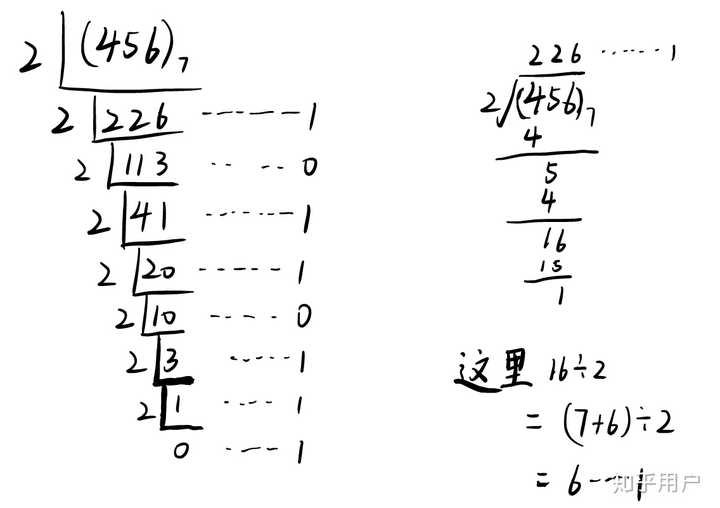 2 (456)₇
2 226 ------- 1
2 113 ------- 0
2 41 ------- 1
2 20 ------- 1
2 10 ------- 0
2 3 ------- 1
2 1 ------- 1
0 ------- 1
226 ······ 1
2 (456)₇
4
5
4
16
15
1
这里 16÷2
= (7+6)÷2
= 6 ---- 1
知乎用户